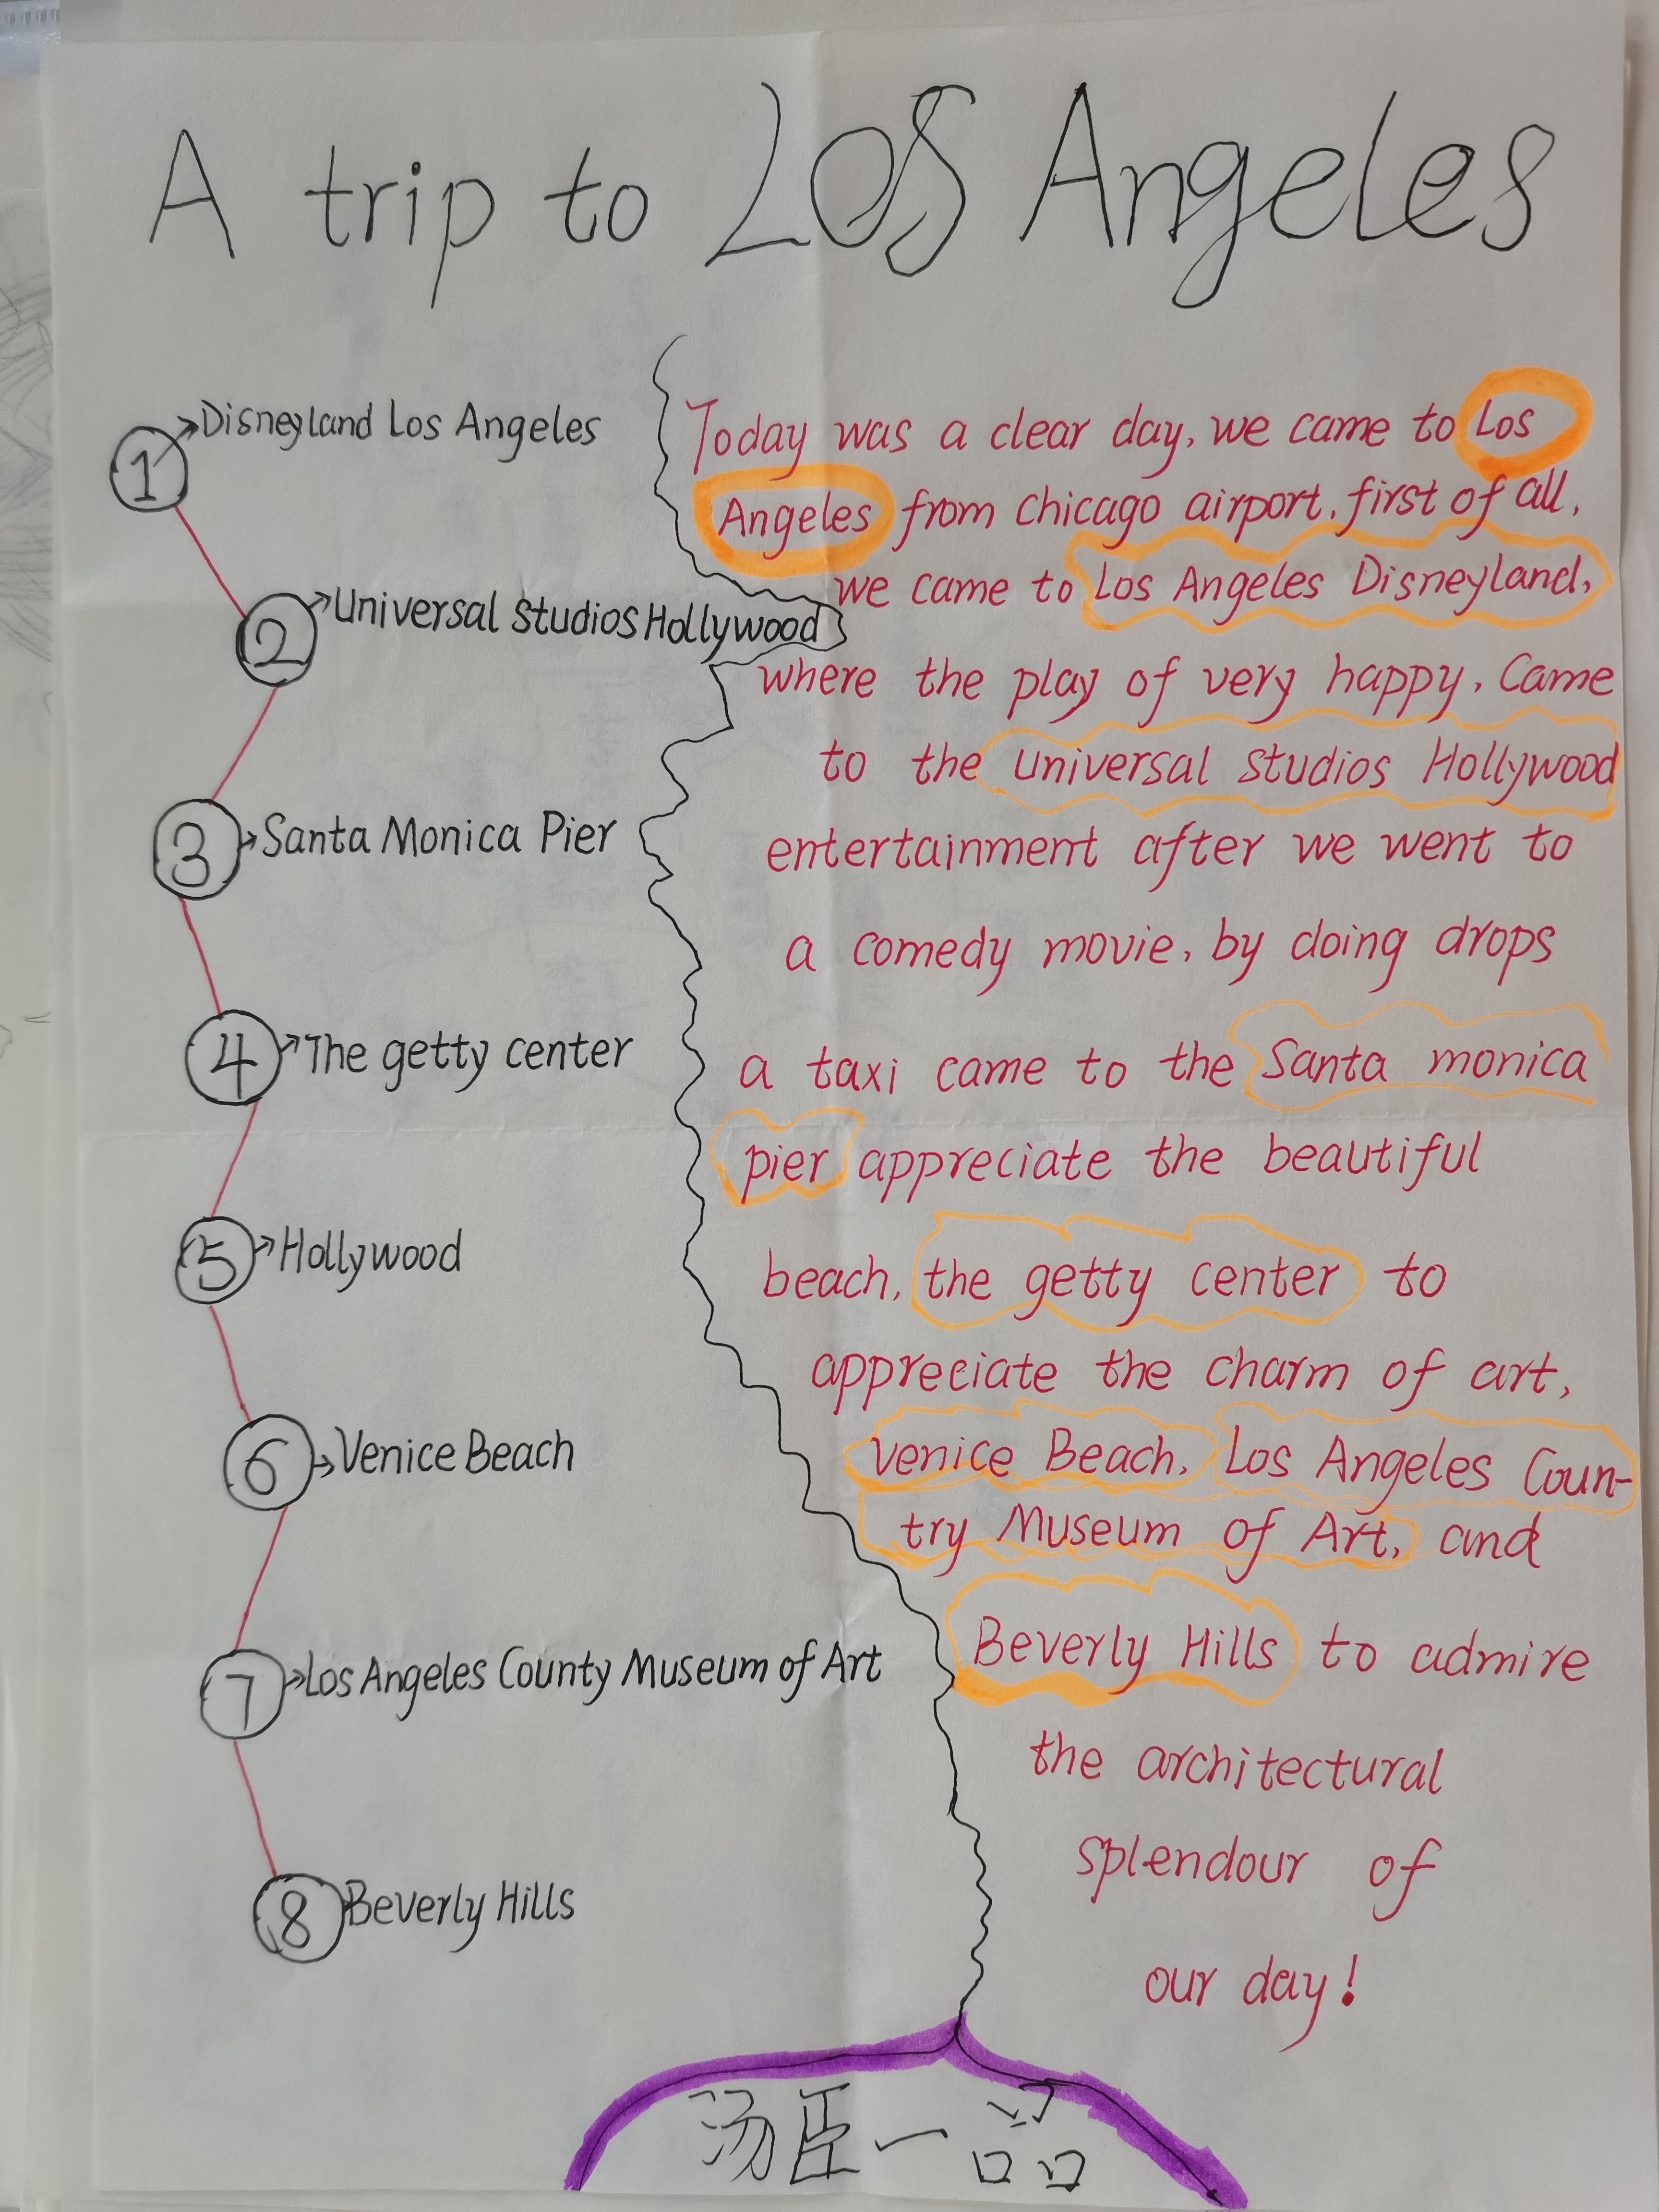 A trip to LOS Angeles
1 Disneyland Los Angeles
2 Universal studios Hollywood
3 Santa Monica Pier
4 The getty center
5 Hollywood
6 Venice Beach
7 Los Angeles County Museum of Art
8 Beverly Hills
Today was a clear day, we came to Los
Angeles from chicago airport, first of all,
we came to Los Angeles Disneyland,
where the play of very happy, Came
to the universal studios Hollywood
entertainment after we went to
a comedy movie, by doing drops
a taxi came to the Santa monica
pier appreciate the beautiful
beach, the getty center to
appreciate the charm of art,
Venice Beach, Los Angeles Coun-
try Museum of Art, and
Beverly Hills to admire
the architectural
splendour of
our day!
汤臣一品